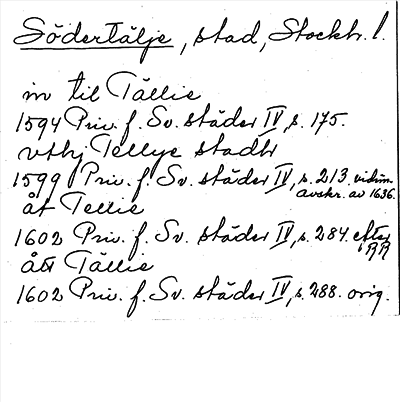 Södertälje, stad, Stockh. l.
in til Tällie
1594 Priv. f. Sv. städer IV, s. 175.
vthj Tellye stadh
1599 Priv. f. Sv. städer IV, s. 213. vidim.
avskr. av 1636.
åt Tellie
1602 Priv. f. Sv. städer IV, s. 284. efter
RR
åt Tällie
1602 Priv. f. Sv. städer IV, s. 288. orig.